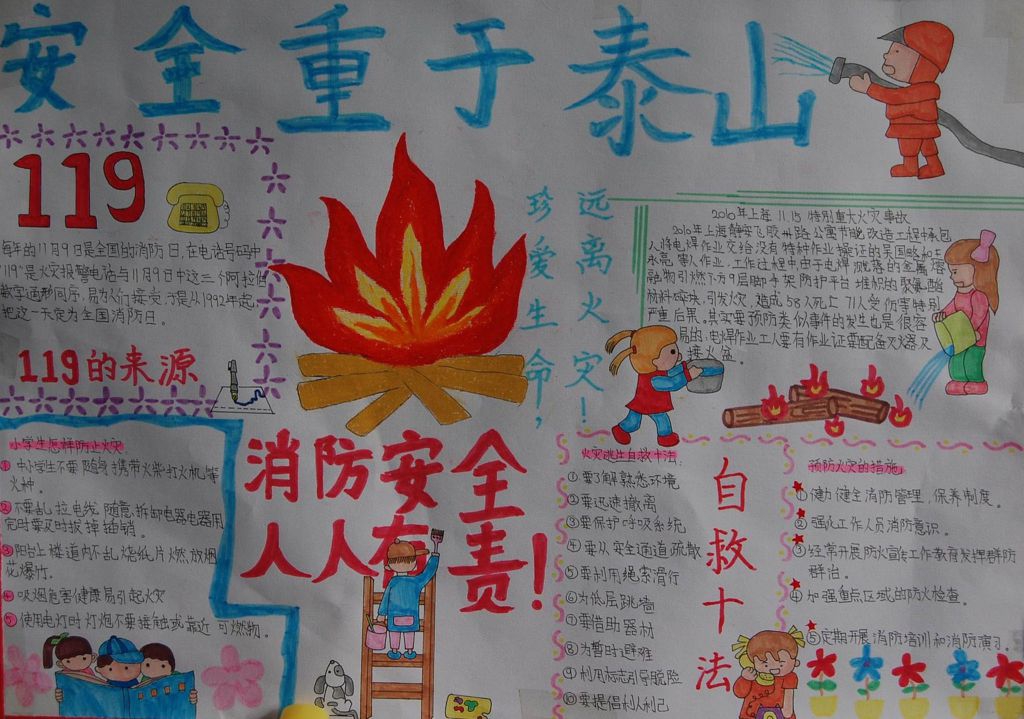 安全重于泰山
119
每年的11月9日是全国的消防日,在电话号码中
"119"是火灾报警电话与11月9日中这三个阿拉伯
数字通形同序,易为人们接受,于是从1992年起,
把这一天定为全国消防日。
119的来源
珍爱生命,
远离火灾!
2010年上海11.15特别重大火灾事故
2010年上海静安飞胶州路公寓节能改造工程中承包
人将电焊作业交给没有特种作业操证的吴国略和王
永亮害人作业,工作过程中由于电焊溅落的金属溶
融物引燃下方9层脚手架防护平台堆积的聚氨酯
材料碎块,引发火灾,造成58人死亡71人受伤等特别
严重后果。其实要预防类似事件的发生也是很容
易的:电焊作业工人要有作业证要配备灭火器及
接火盆。
小学生怎样防止火灾
①中小学生不要随身携带火柴打火机等
火种。
②不要乱拉电线,随意拆卸电器电器用
完时要及时拔掉插销。
③阳台上楼道内不乱烧纸片燃放烟
花爆竹。
④吸烟危害健康易引起火灾
⑤使用电灯时灯炮不要接触或靠近可燃物。
消防安全
人人有责!
火灾逃生自救十法:
①要了解熟悉环境
②要迅速撤离
③要保护呼吸系统
④要从安全通道疏散
⑤要利用绳索滑行
⑥为低层跳墙
⑦要借助器材
⑧为暂时避难
⑨利用标志引导脱险
⑩要提倡利人利己
自救十法
预防火灾的措施
①健力健全消防管理,保养制度。
②强化工作人员消防意识。
③经常开展防火宣传工作教育发挥群防
群治。
④加强重点区域的防火检查。
⑤定期开展消防培训和消防演习。